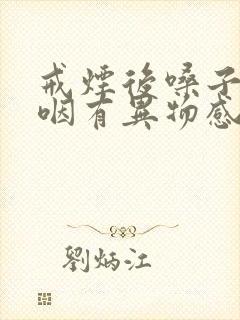 戒煙後嗓子
咽有異物感
劉炳江